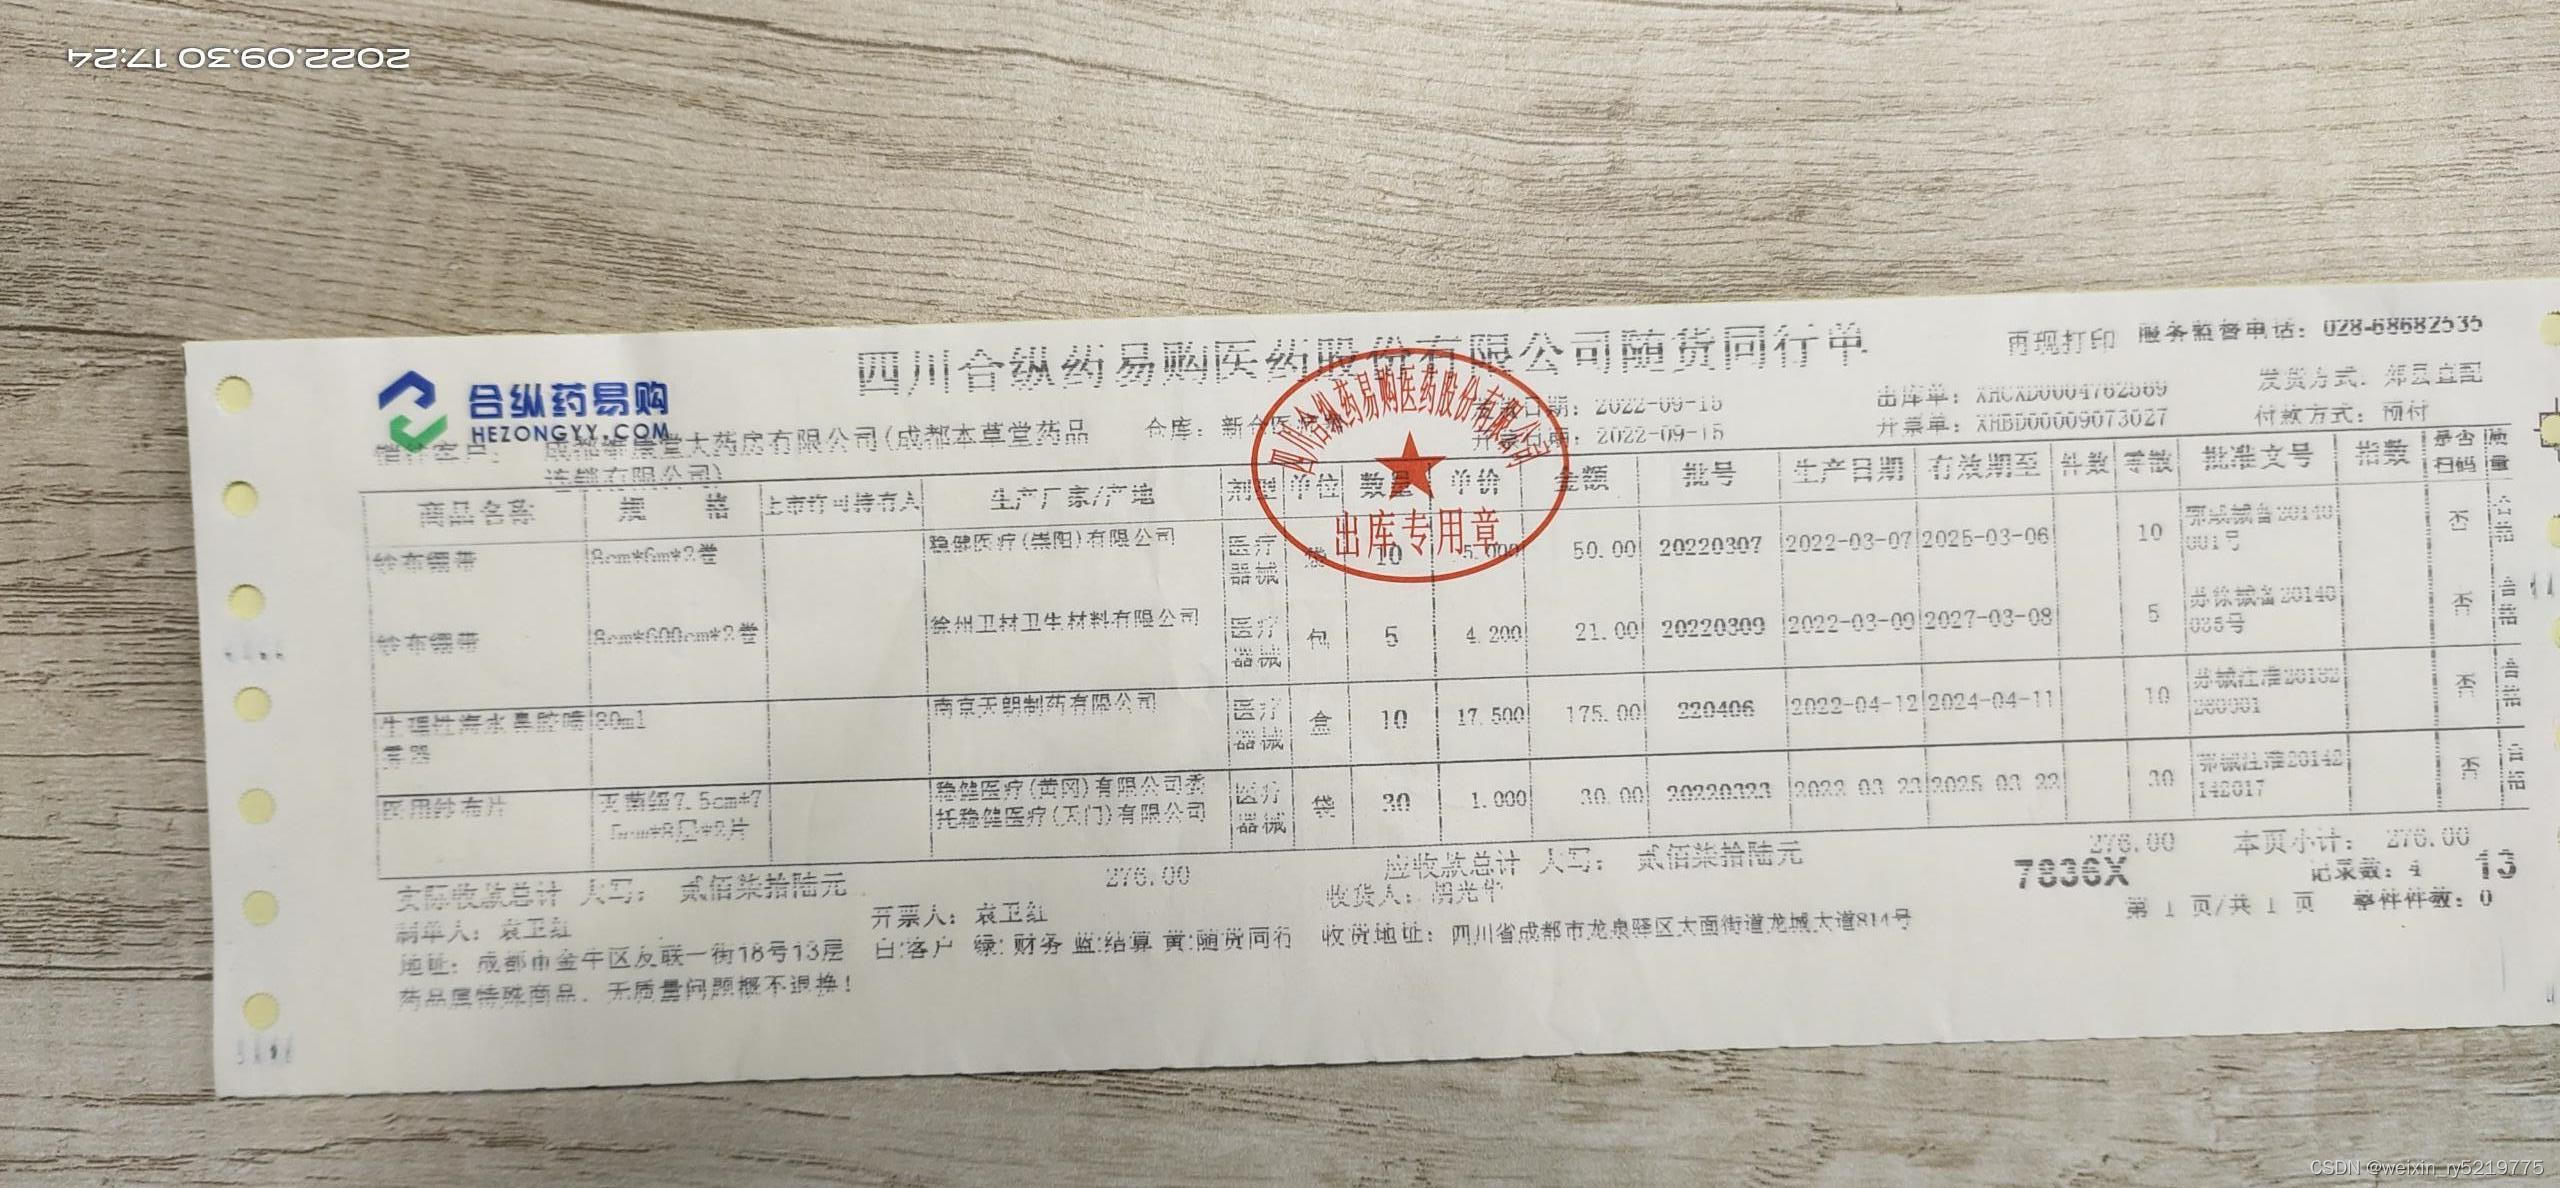 2022.09.30 17:24
四川合纵药易购医药股份有限公司随货同行单
再现打印 服务监督电话: 028-68682535
合纵药易购
HEZONGYY.COM
销往客户: 成都 康堂大药房有限公司(成都本草堂药品
连锁有限公司)
仓库: 新合医疗
发货日期: 2022-09-15
开票日期: 2022-09-15
出库单: XHCXD00004762569
开票单: XHBD00009073027
发货方式: 郊县直配
付款方式: 预付
四川合纵药易购医药股份有限公司
出库专用章
商品名称 规 格 上市许可持有人 生产厂家/产地 剂型 单位 数量 单价 金额 批号 生产日期 有效期至 件数 零散 批准文号 指数 是否扫码 质量
纱布绷带 8cm*6m*2卷 稳健医疗(崇阳)有限公司 医疗器械 袋 10 5.000 50.00 20220307 2022-03-07 2025-03-06 10 鄂咸械备20140001号 否 合格
纱布绷带 8cm*600cm*2卷 徐州卫材卫生材料有限公司 医疗器械 包 5 4.200 21.00 20220309 2022-03-09 2027-03-08 5 苏徐械备20140035号 否 合格
生理性海水鼻腔喷雾器 80ml 南京天朗制药有限公司 医疗器械 盒 10 17.500 175.00 220406 2022-04-12 2024-04-11 10 苏械注准20182 否 合格
医用纱布片 灭菌级7.5cm*7.5cm*8层*2片 稳健医疗(黄冈)有限公司委托稳健医疗(天门)有限公司 医疗器械 袋 30 1.000 30.00 20220323 2022-03-23 2025-03-22 30 鄂械注准20142142017 否 合格
实际收款总计 大写: 贰佰柒拾陆元 276.00 应收款总计 大写: 贰佰柒拾陆元 276.00 本页小计: 276.00
制单人: 袁卫红 开票人: 袁卫红 收货人: 胡光华 7836X 记录数: 4 13
地址: 成都市金牛区友联一街18号13层 白:客户 绿:财务 蓝:结算 黄:随货同行 收货地址: 四川省成都市龙泉驿区大面街道龙城大道814号 第 1 页/共 1 页 整件件数: 0
药品属特殊商品, 无质量问题概不退换!
CSDN @weixin_ry5219775